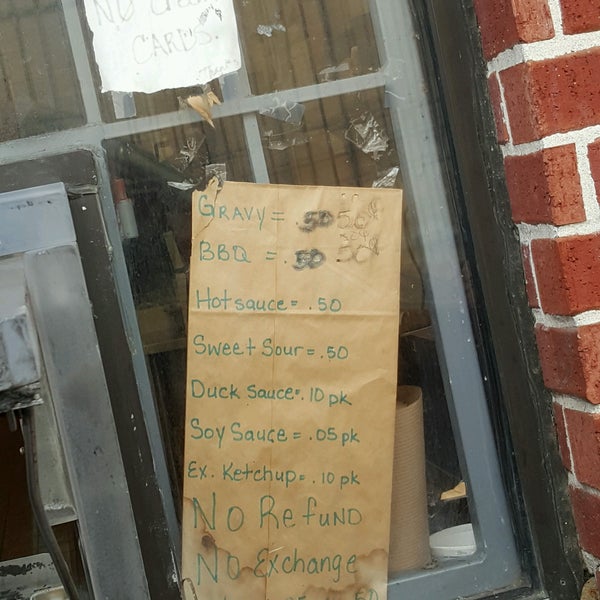 NO
CARDS.
GRAVY = .50 50¢
BBQ = .50 50¢
Hot sauce = .50
Sweet Sour = .50
Duck Sauce = .10 pk
Soy Sauce = .05 pk
Ex. Ketchup = .10 pk
NO Refund
NO Exchange
50